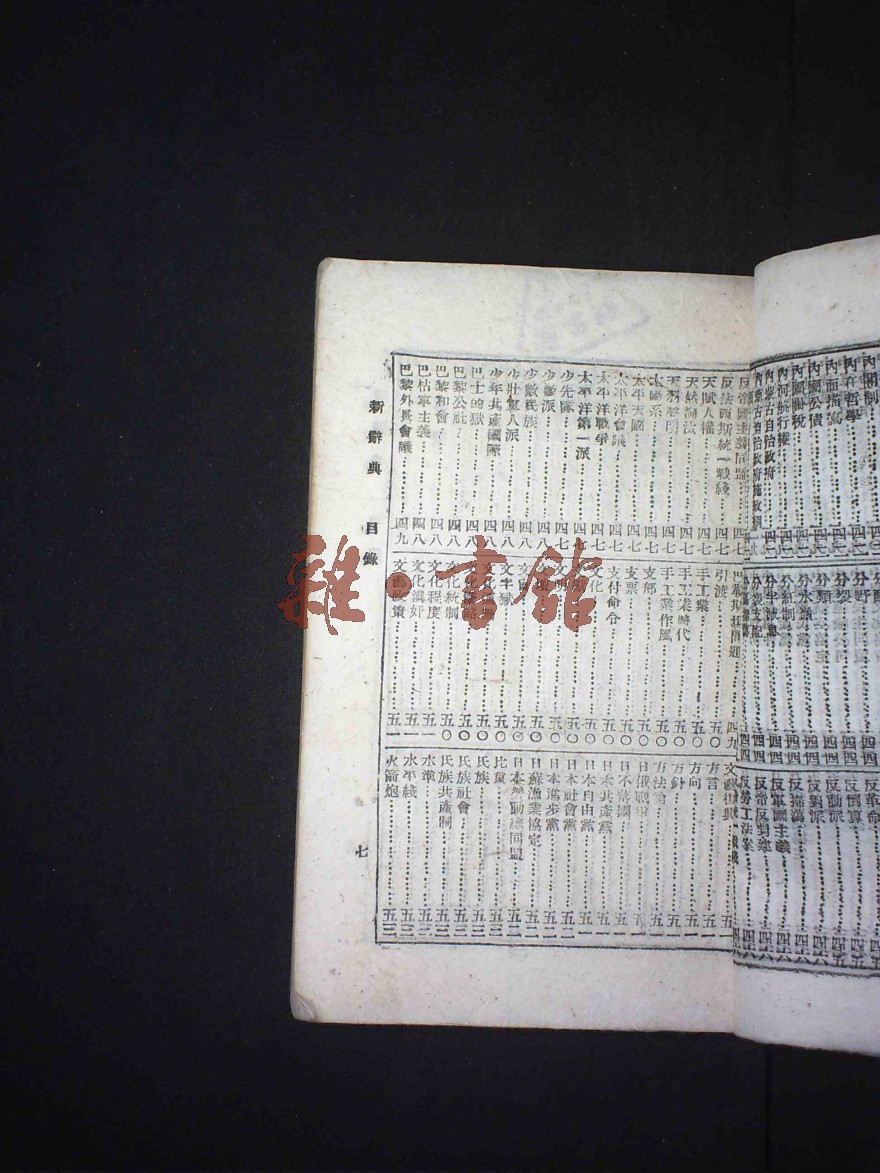 內閣制
內在哲學
內面描寫
內國公債
內國關稅
內河航行權
內蒙古自治政府
內蒙古自治政府施政綱領
分野
分裂
分類
分水嶺
分紅制
反革命
反倒算
反動派
反對派
反掃蕩
反軍國主義
反帝反封建
反勞工法案
反帝國主義同盟……四七
反法西斯統一戰綫……四七
天賦人權……四七
天然淘汰……四七
太陽系……四七
太平天國……四七
太平洋會議……四七
太平洋戰爭……四七
太平洋第一派……四七
少先隊……四七
少數派……四八
少數民族……四八
少壯軍人派……四八
少年共產國際……四八
巴士的獄……四八
巴黎公社……四八
巴黎和會……四八
巴枯寧主義……四八
巴黎外長會議……四九
引渡……五〇
手工業……五〇
手工業時代……五〇
手工業作風……五〇
支部……五〇
支票……五〇
支付命令……五〇
文化……五〇
文字獄……五〇
文化統制……五〇
文化程度……五一
文化漢奸……五一
文藝政策……五一
文藝復興……五一
方言……五一
方向……五一
方針……五一
方法論……五一
日俄戰爭……五一
日不落國……五一
日本共產黨……五一
日本自由黨……五一
日本社會黨……五二
日本進步黨……五二
日蘇漁業協定……五二
日本勞動總同盟……五二
比重……五二
民族……五三
民族社會……五三
氏族共產制……五三
水準……五三
水平綫……五三
火箭炮……五三
新辭典 目錄
七
雜·書館